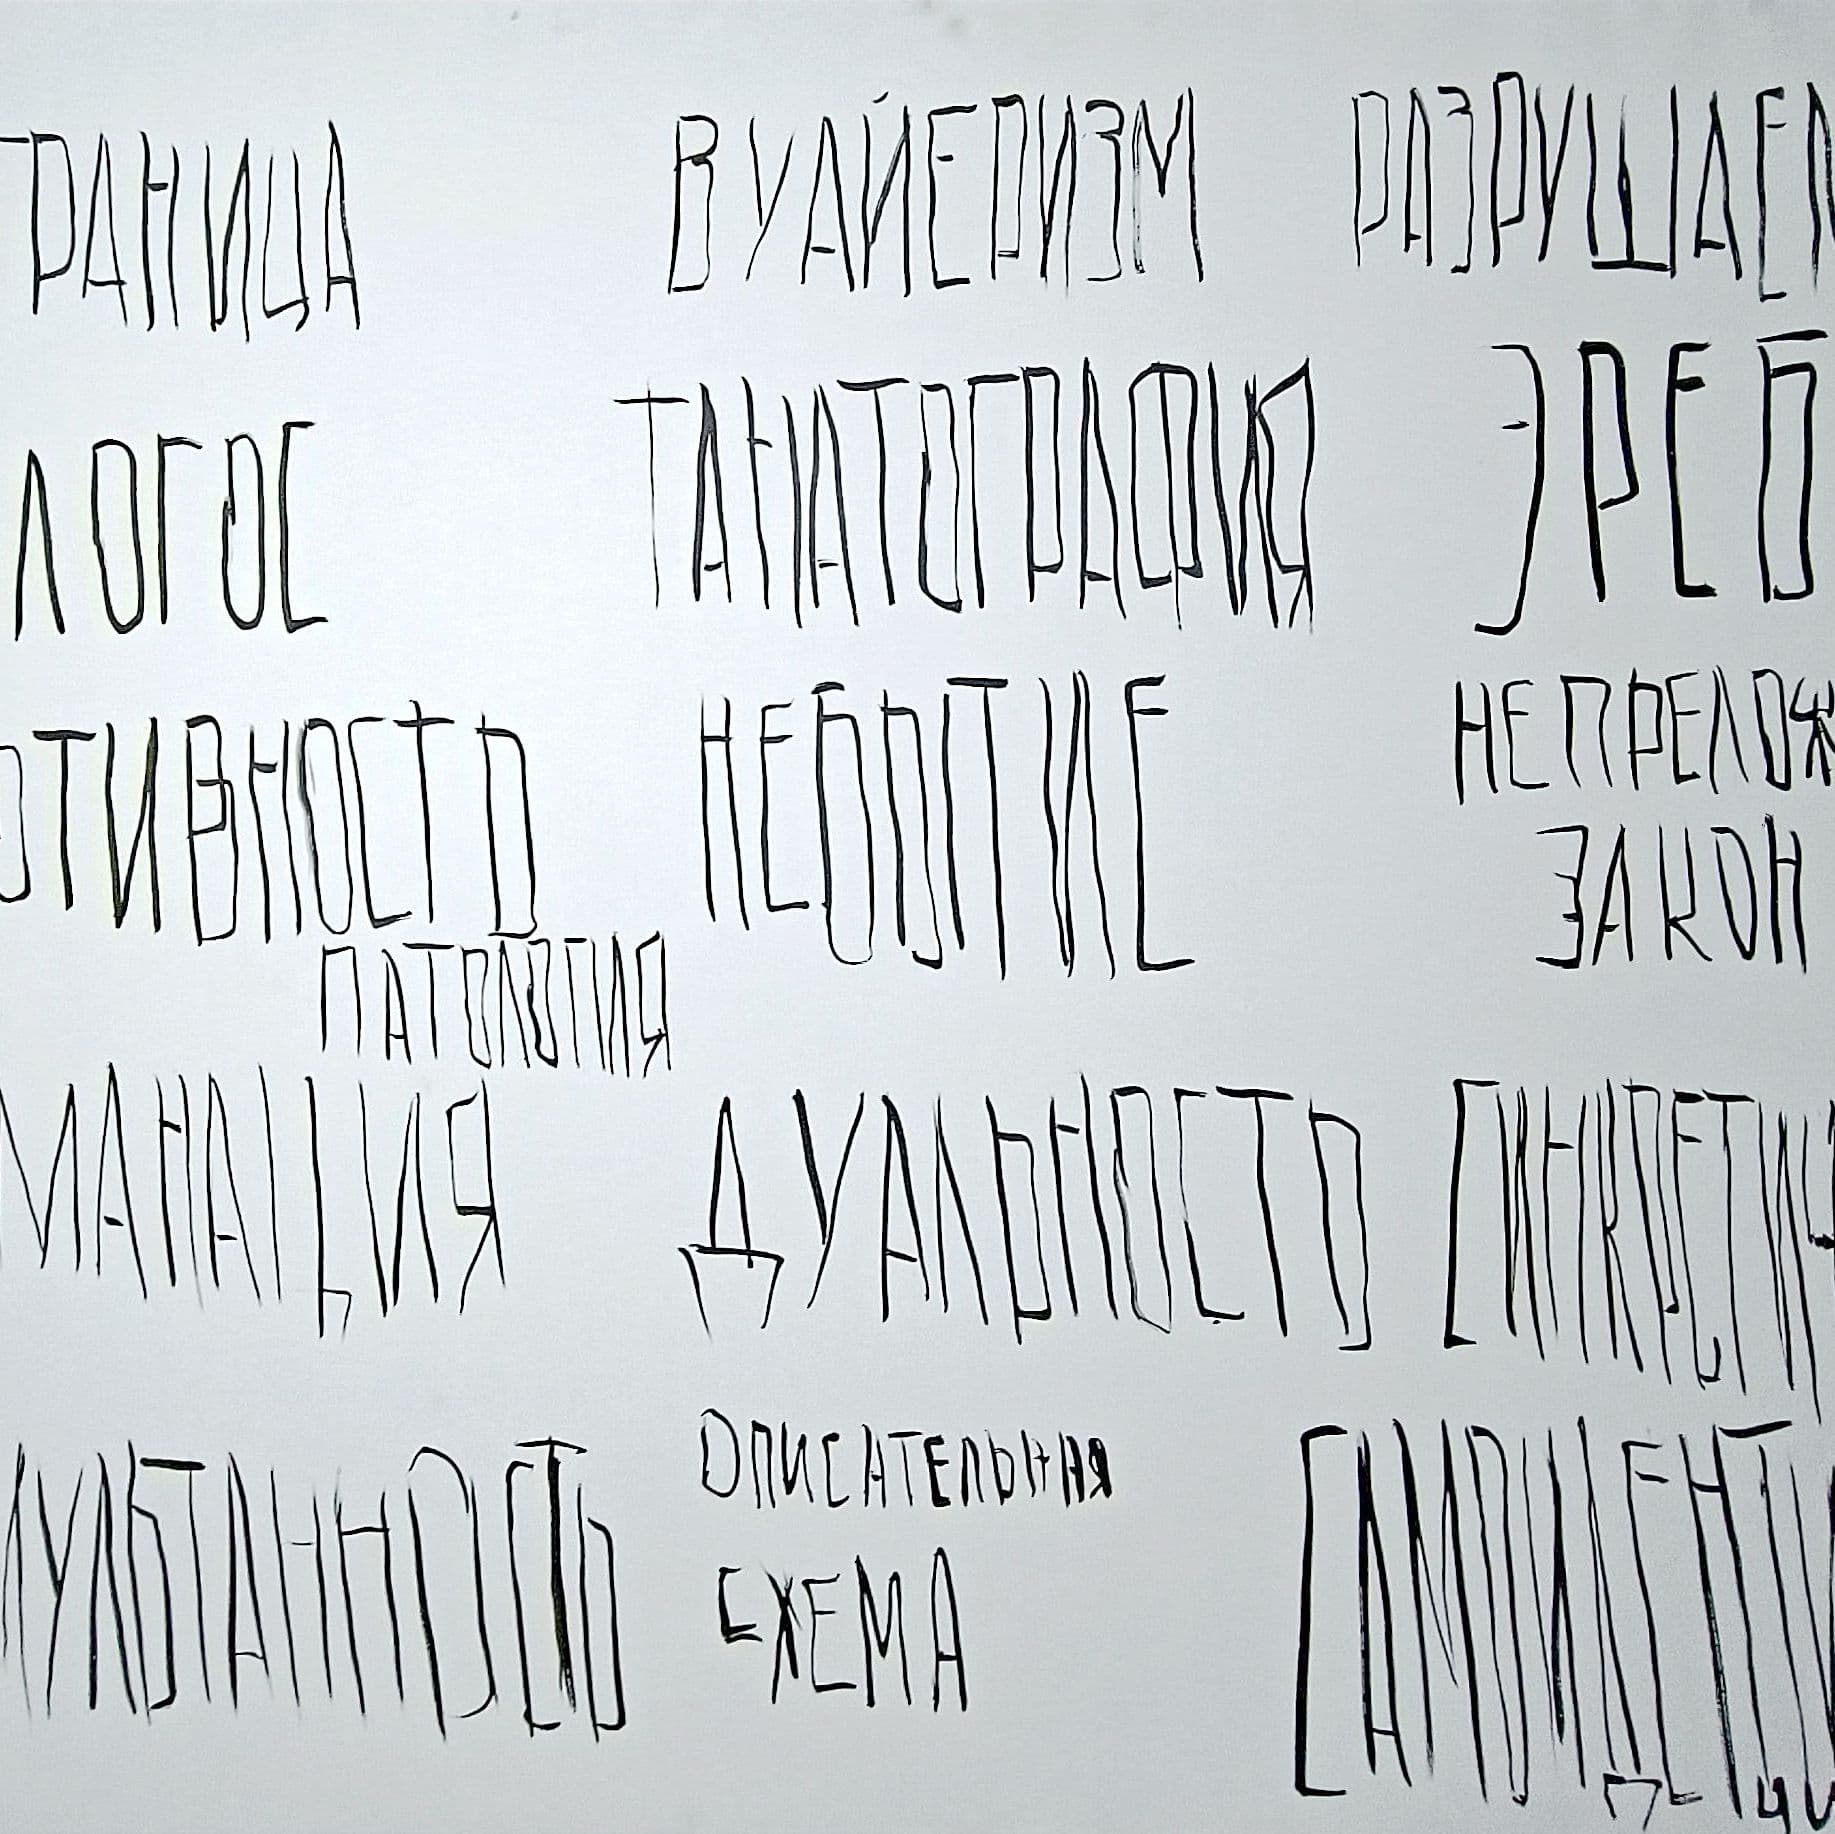 ТРАНИЦА ВУАЙЕРИЗМ РАЗРУШАЕМ
ЛОГОС ТАНАТОГРАФИЯ ЭРЕБ
ОТИВНОСТЬ НЕБЫТИЕ НЕПРЕЛОЖ
ЗАКОН
ПАТОЛОГИЯ
МАНАЦИЯ ДУАЛЬНОСТЬ СИНКРЕТИЧ
МУЛЬТАННОСТЬ ОПИСАТЕЛЬНАЯ САМОИДЕНТИ
СХЕМА